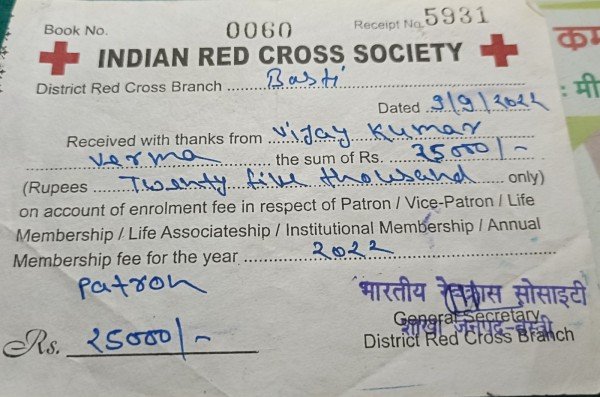 Book No. 0060 Receipt No. 5931
INDIAN RED CROSS SOCIETY
District Red Cross Branch Basti
Dated 9/9/2022
Received with thanks from Vijay Kumar
Verma the sum of Rs. 25000/-
(Rupees Twenty five thousand only)
on account of enrolment fee in respect of Patron / Vice-Patron / Life
Membership / Life Associateship / Institutional Membership / Annual
Membership fee for the year 2022
Patron
भारतीय रेडक्रास सोसाइटी
General Secretary
शाखा जनपद-बस्ती
District Red Cross Branch
Rs. 25000/-